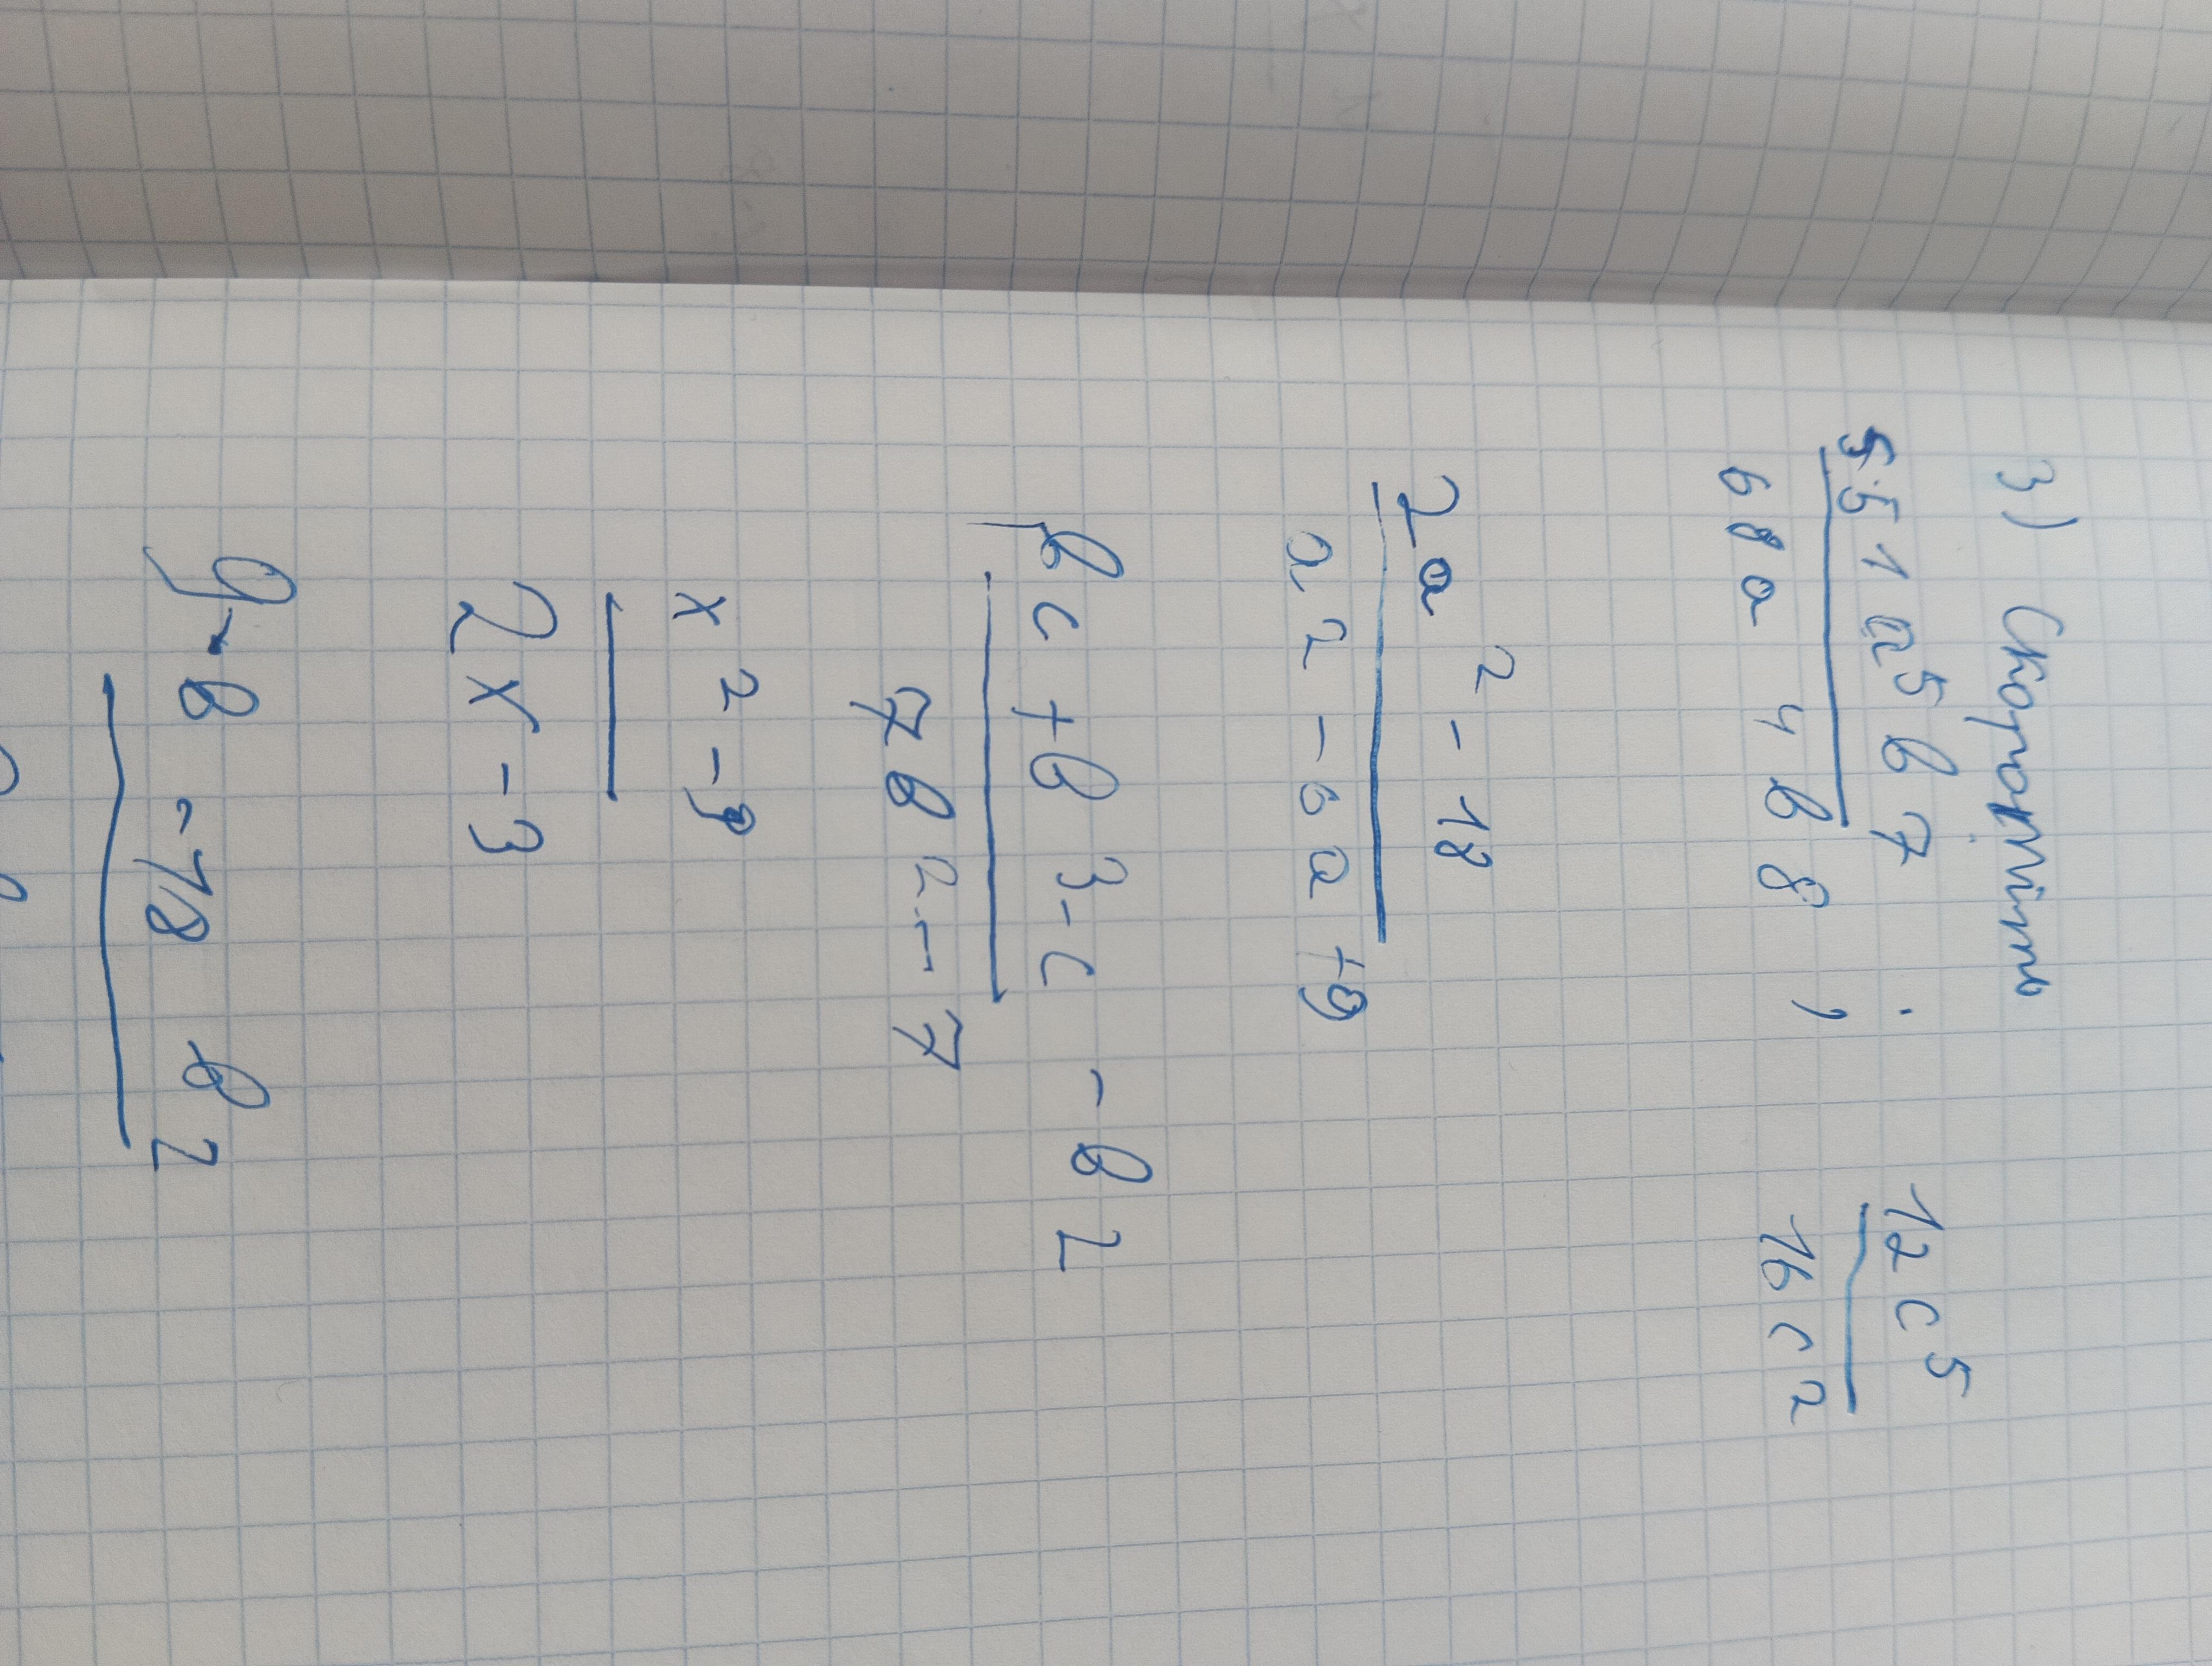 3) Скоротить
5.51a⁵b7 . 12c5
68a4b8 , 16c2
2a² - 18
a2 - 6a + 9
bc + b3 - c - b2
7b2 - 7
x2 - 9
2x - 3
9 - b - 18b2